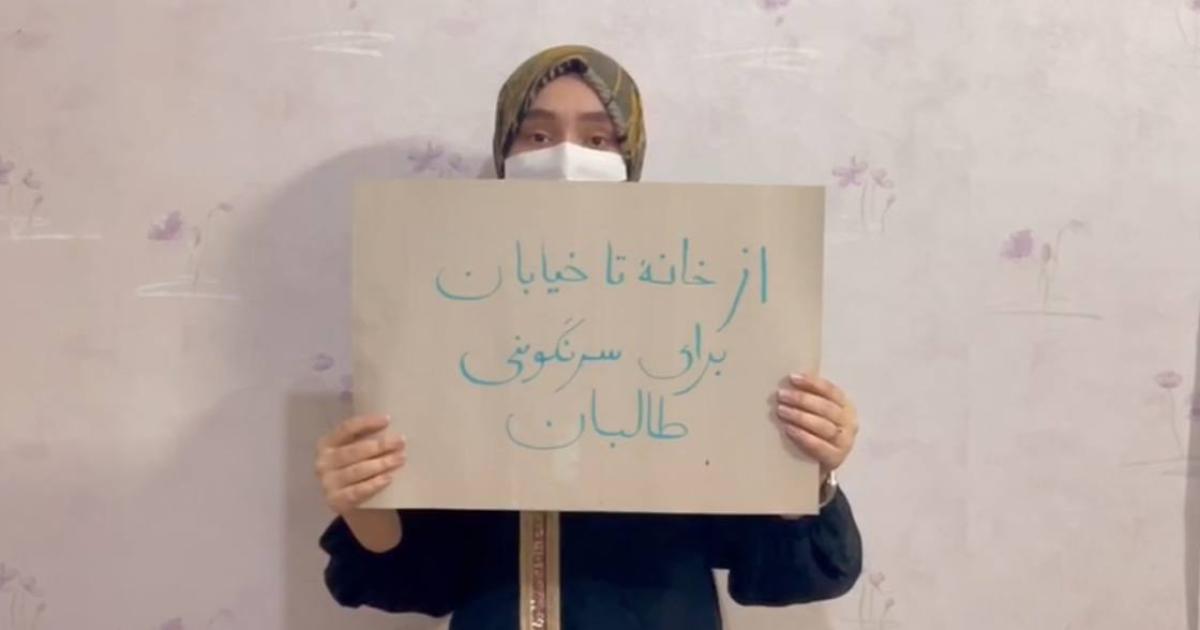 از خانهٔ تا خیابان
برای سرنگونی
طالبان